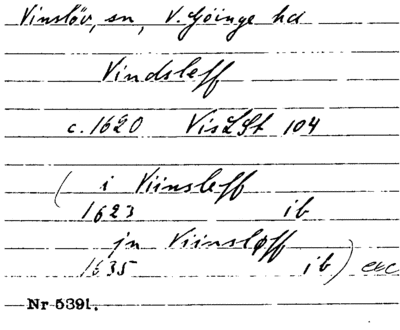 Vinslöv, sn, V. Göinge hd
Vindsleff
c. 1620 VisLSt 104
( i Viinsleff
1623 ib
jn Viinsløff
1635 ib) exc
Nr 5391.